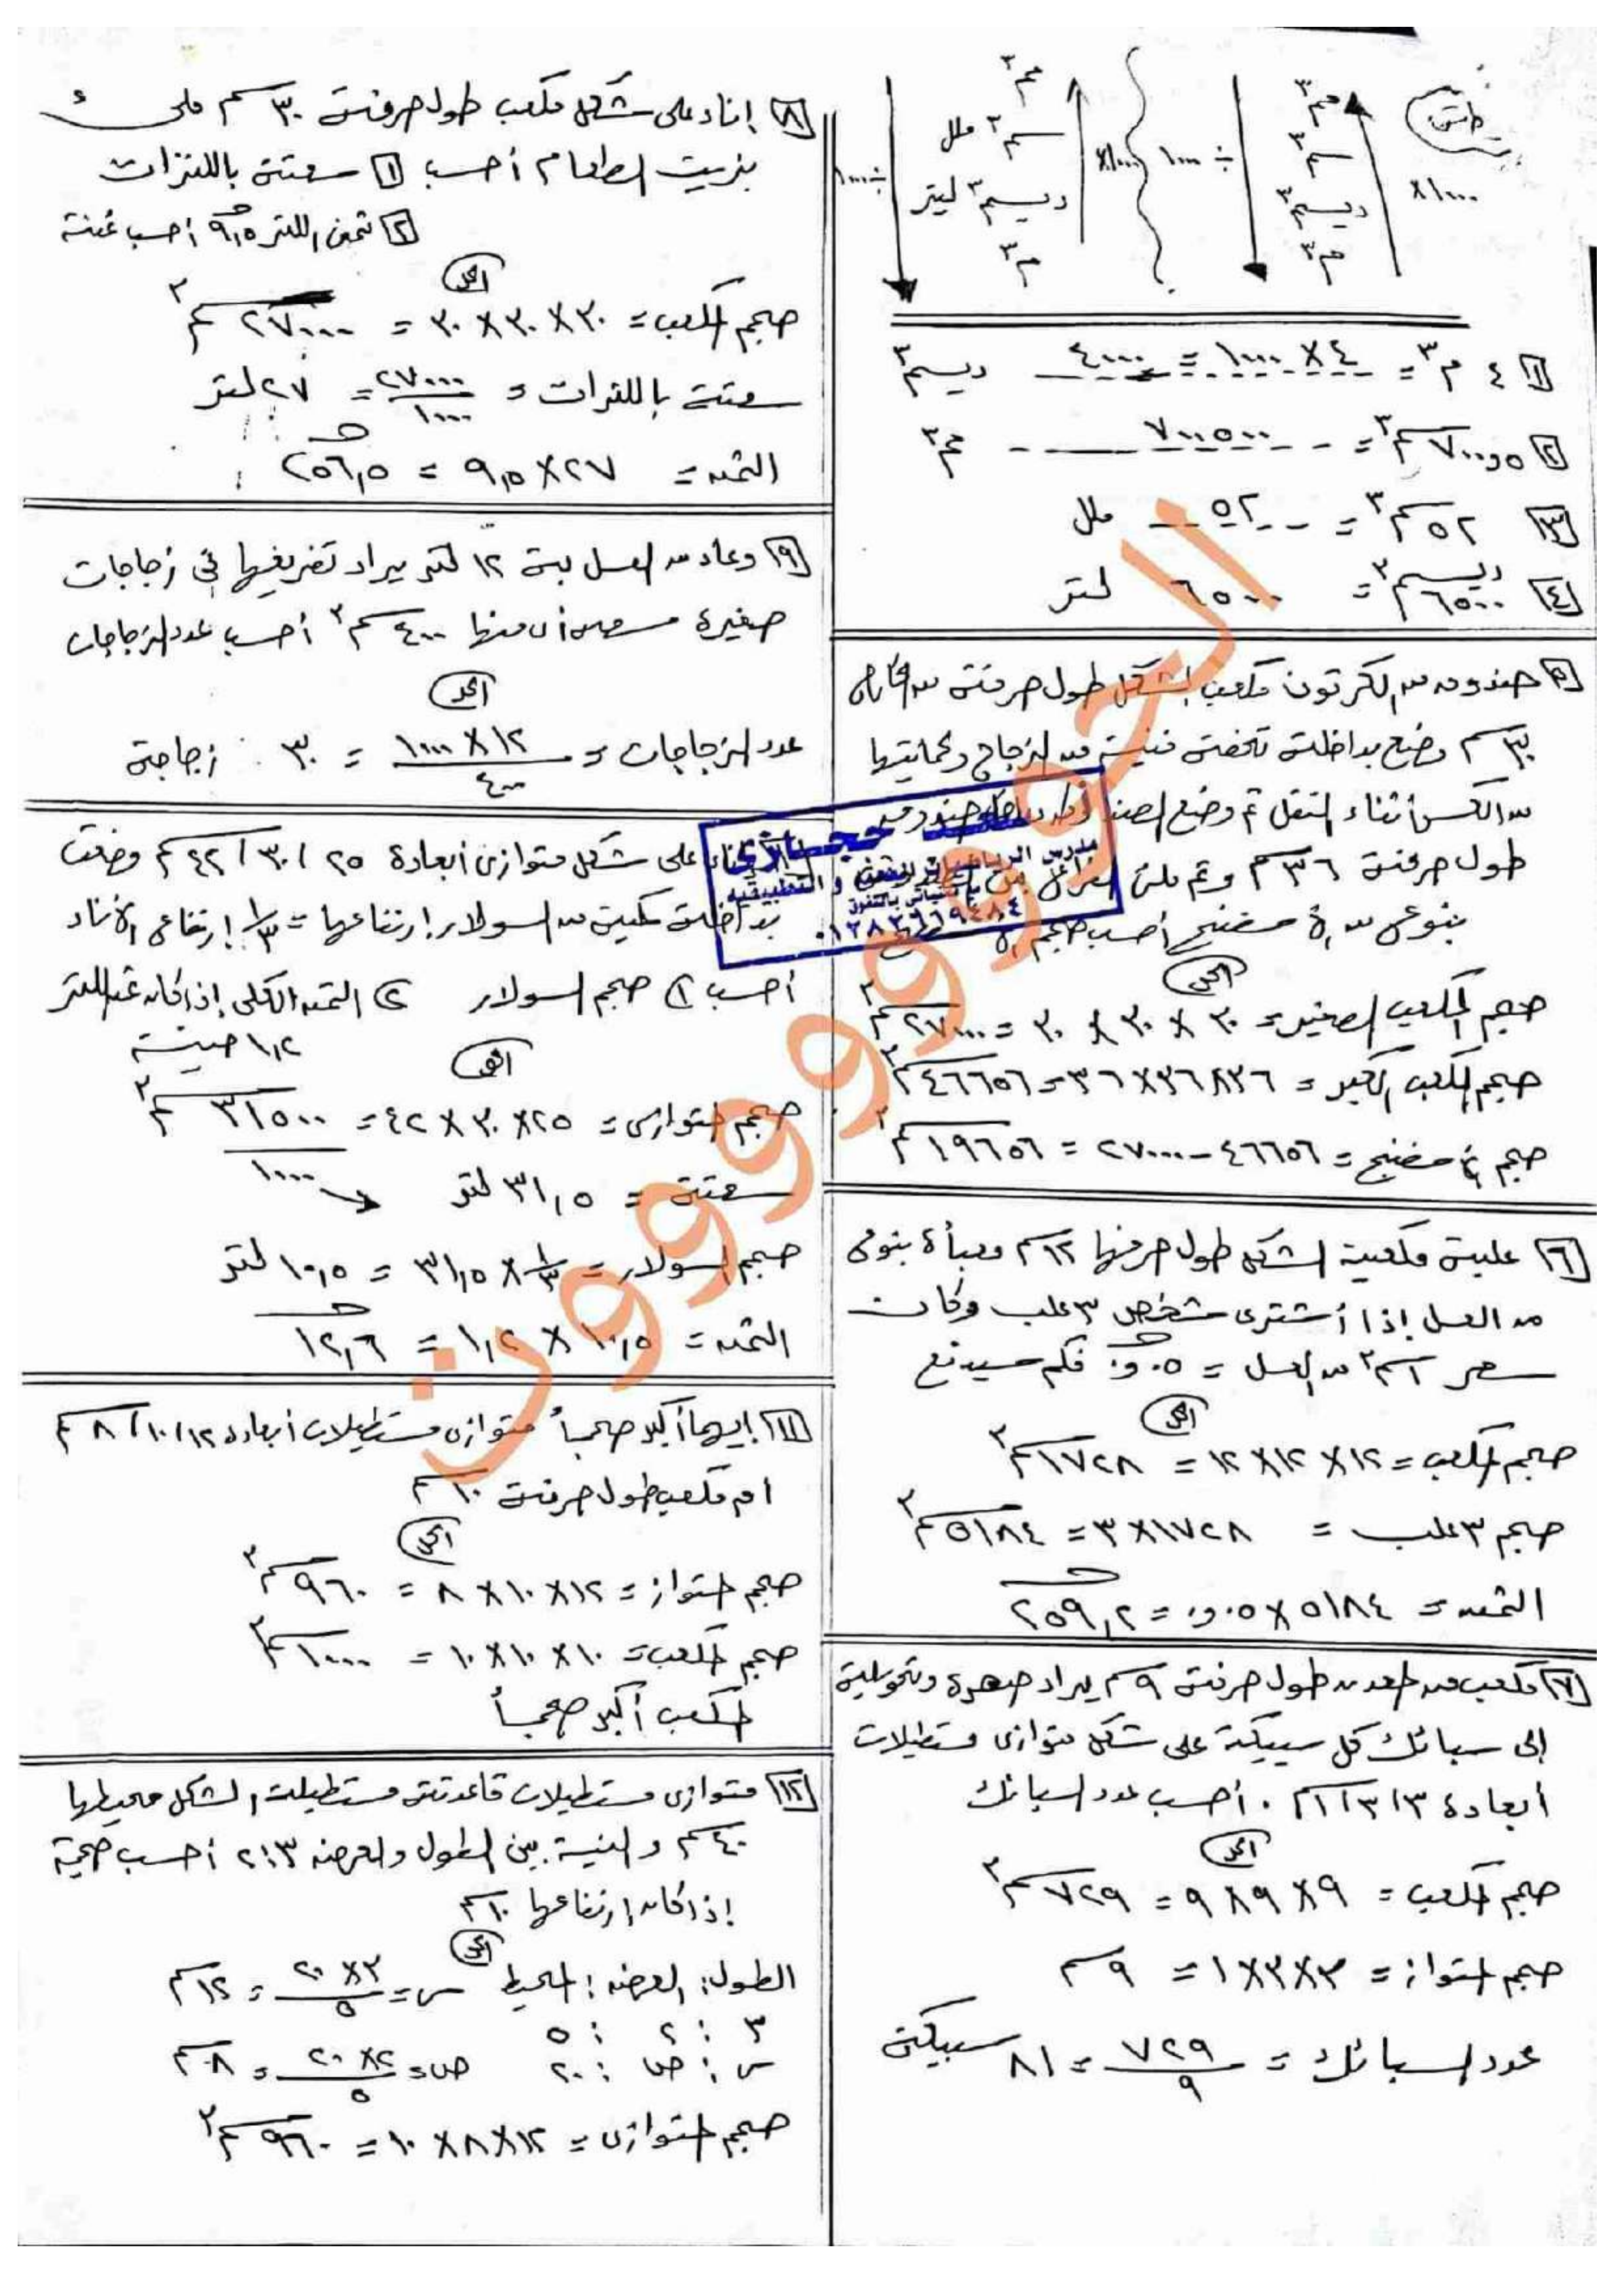 مم٣
سم٣
ديسم٣
م٣
×١٠٠٠
÷١٠٠٠
مم٣
سم٣ ملل
ديسم٣ ليتر
م٣
×١٠٠٠
÷١٠٠٠
١ ٤ م٣ = ٤×١٠٠٠ = ٤٠٠٠ ديسم٣
٢ ٧٠٠,٥ سم٣ = ٧٠٠٥٠٠ مم٣
٣ ٥٢ سم٣ = ٥٢ ملل
٤ ٦٥٠٠ ديسم٣ = ٦٥٠٠ لتر
٥ صندوق من الكرتون مكعب الشكل طول حرفه من الخارج
٣٠ سم وضع بداخله تحفة فنية من الزجاج ولحمايتها
من الكسر أثناء النقل تم وضع الصندوق داخل صندوق
طول حرفه ٣٦ سم وتم ملئ الفراغ بين
بنوع من الأسفنج أحسب حجم
الحل
حجم المكعب الصغير = ٣٠ × ٣٠ × ٣٠ = ٢٧٠٠٠ سم٣
حجم المكعب الكبير = ٣٦×٣٦×٣٦ = ٤٦٦٥٦ سم٣
حجم الأسفنج = ٤٦٦٥٦ - ٢٧٠٠٠ = ١٩٦٥٦ سم٣
٦ علبة مكعبية الشكل طول حرفها ١٢ سم معبأة بنوع
من العسل إذا أشترى شخص ٣ علب وكان
سعر ١ سم٣ من العسل = ٠,٠٥ جـ فكم سيدفع
الحل
حجم المكعب = ١٢ × ١٢ × ١٢ = ١٧٢٨ سم٣
حجم ٣ علب = ١٧٢٨×٣ = ٥١٨٤ سم٣
الثمن = ٥١٨٤ × ٠,٠٥ = ٢٥٩,٢ جـ
٧ مكعب من المعدن طول حرفه ٩ سم يراد صهره وتحويله
إلى سبائك كل سبيكة على شكل متوازى مستطيلات
أبعاده ٣، ٣، ١ سم . أحسب عدد السبائك
الحل
حجم المكعب = ٩×٩×٩ = ٧٢٩ سم٣
حجم المتواز = ٣×٣×١ = ٩ سم
عدد السبائك = ٧٢٩ / ٩ = ٨١ سبيكة
٨ إناء على شكل مكعب طول حرفه ٣٠ سم ملئ
بزيت الطعام أحسب ١ سعته باللترات
٢ ثمن اللتر ٩,٥ جـ أحسب ثمنه
الحل
حجم المكعب = ٣٠×٣٠×٣٠ = ٢٧٠٠٠ سم٣
سعته باللترات = ٢٧٠٠٠ / ١٠٠٠ = ٢٧ لتر
الثمن = ٢٧ × ٩,٥ = ٢٥٦,٥ جـ
٩ وعاء من العسل به ١٢ لتر يراد تفريغها في زجاجات
صغيرة سعة أى منها ٤٠٠ سم٣ أحسب عدد الزجاجات
الحل
عدد الزجاجات = ١٢×١٠٠٠ / ٤٠٠ = ٣٠ زجاجة
إناء على شكل متوازى أبعاده ٢٥، ٣٠، ٤٢ سم وضعت
بداخله كمية من السولار إرتفاعها = ١/٣ إرتفاع الإناء
أحسب ١ حجم السولار ٢ الثمن الكلى إذا كان ثمن اللتر
١,٢ جنيه
الحل
حجم المتوازى = ٢٥×٣٠×٤٢ = ٣١٥٠٠ سم٣
١٠٠٠
سعته = ٣١,٥ لتر
حجم السولار = ١/٣ × ٣١,٥ = ١٠,٥ لتر
الثمن = ١٠,٥ × ١,٢ = ١٢,٦ جـ
١١ إيهما أكبر حجماً متوازى مستطيلات أبعاده ١٢، ١٠، ٨ سم
أم مكعب طول حرفه ١٠ سم
الحل
حجم المتواز = ١٢×١٠×٨ = ٩٦٠ سم٣
حجم المكعب = ١٠×١٠×١٠ = ١٠٠٠ سم٣
المكعب أكبر حجماً
١٢ متوازى مستطيلات قاعدته مستطيلة الشكل محيطها
٤٠ سم والنسبة بين الطول والعرض ٣:٢ أحسب حجمه
إذا كان إرتفاعها ١٠ سم
الحل
الطول : العرض : المحيط س = ٣×٢٠ / ٥ = ١٢ سم
٣ : ٢ : ٥
س : ص : ٢٠ ص = ٢×٢٠ / ٥ = ٨ سم
حجم المتوازى = ١٢×٨×١٠ = ٩٦٠ سم٣